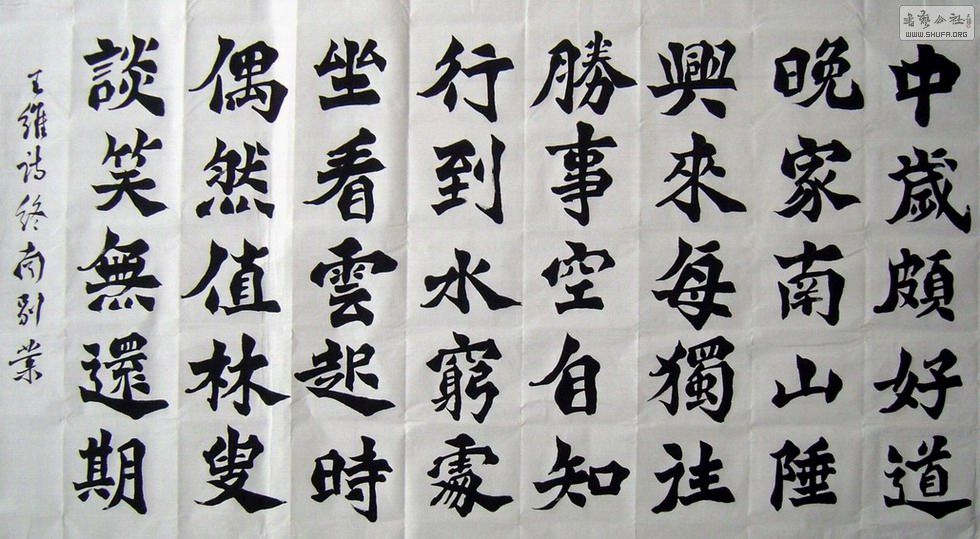 中歲頗好道
晚家南山陲
興來每獨往
勝事空自知
行到水窮處
坐看雲起時
偶然值林叟
談笑無還期
王維詩終南別業
書藝公社
WWW.SHUFA.ORG